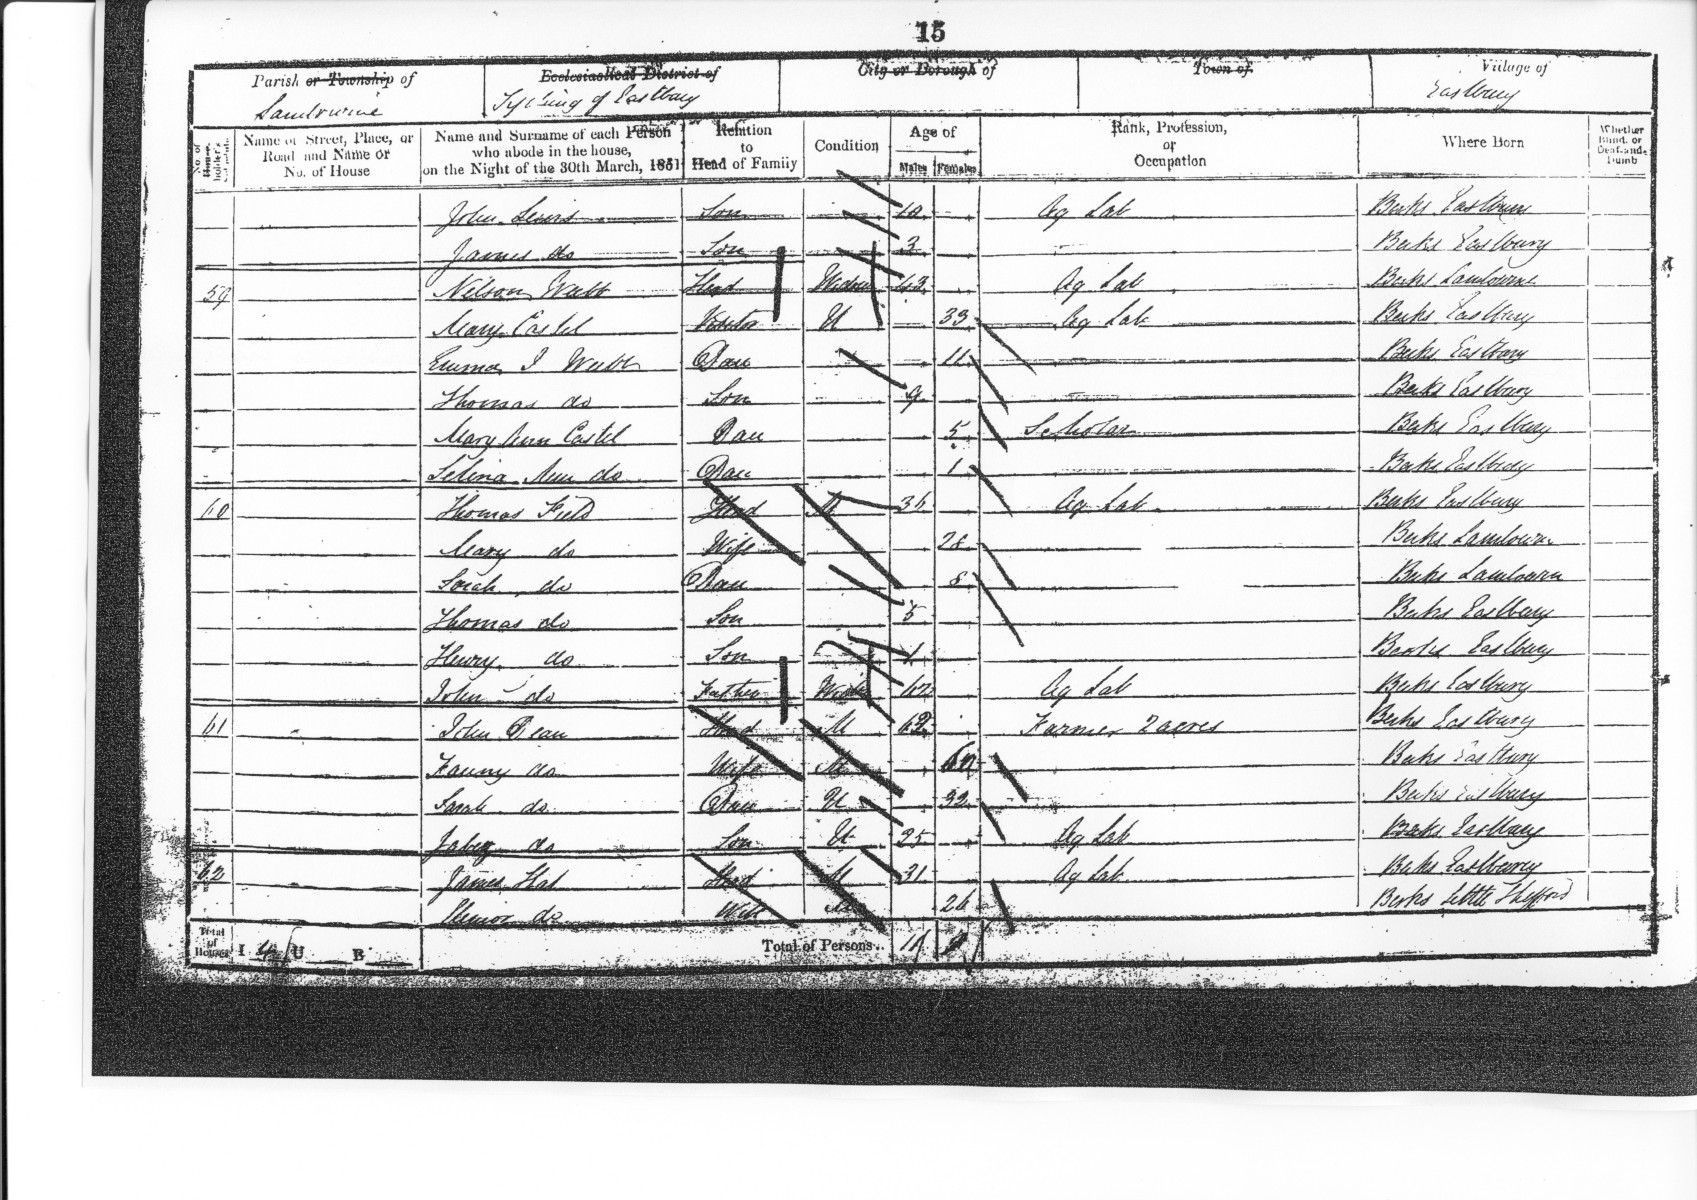 15
Parish or Township of
Ecclesiastical District of
City or Borough of
Town of
Village of
Lambourne
Tything of Eastbury
Eastbury
No. of House-holder's Schedule
Name of Street, Place, or Road and Name or No. of House
Name and Surname of each Person who abode in the house, on the Night of the 30th March, 1851
Relation to Head of Family
Condition
Age of
Males
Females
Rank, Profession, or Occupation
Where Born
Whether Blind, or Deaf-and-Dumb
John Lewis Son 10 Ag Lab Berks Eastbury
James do Son 3 Berks Eastbury
59 Nelson Webb Head Widower 43 Ag Lab Berks Lambourne
Mary Castel Visitor U 33 Ag Lab Berks Eastbury
Emma J Webb Dau 11 Berks Eastbury
Thomas do Son 9 Berks Eastbury
Mary Ann Castel Dau 5 Scholar Berks Eastbury
Selina Ann do Dau 1 Berks Eastbury
60 Thomas Field Head M 36 Ag Lab Berks Eastbury
Mary do Wife 28 Berks Lambourn
Sarah do Dau 8 Berks Lambourn
Thomas do Son 5 Berks Eastbury
Henry do Son 1 Berks Eastbury
John do Father Widr 62 Ag Lab Berks Eastbury
61 John Dean Head M 62 Farmer 2 acres Berks Eastbury
Fanny do Wife M Berks Eastbury
Sarah do Dau U 32 Berks Eastbury
Jabez do Son U 25 Ag Lab Berks Eastbury
62 James Head M 31 Ag Lab Berks Eastbury
do Wife M 26 Berks Little
Total of Houses I 4 U B Total of Persons 11 9